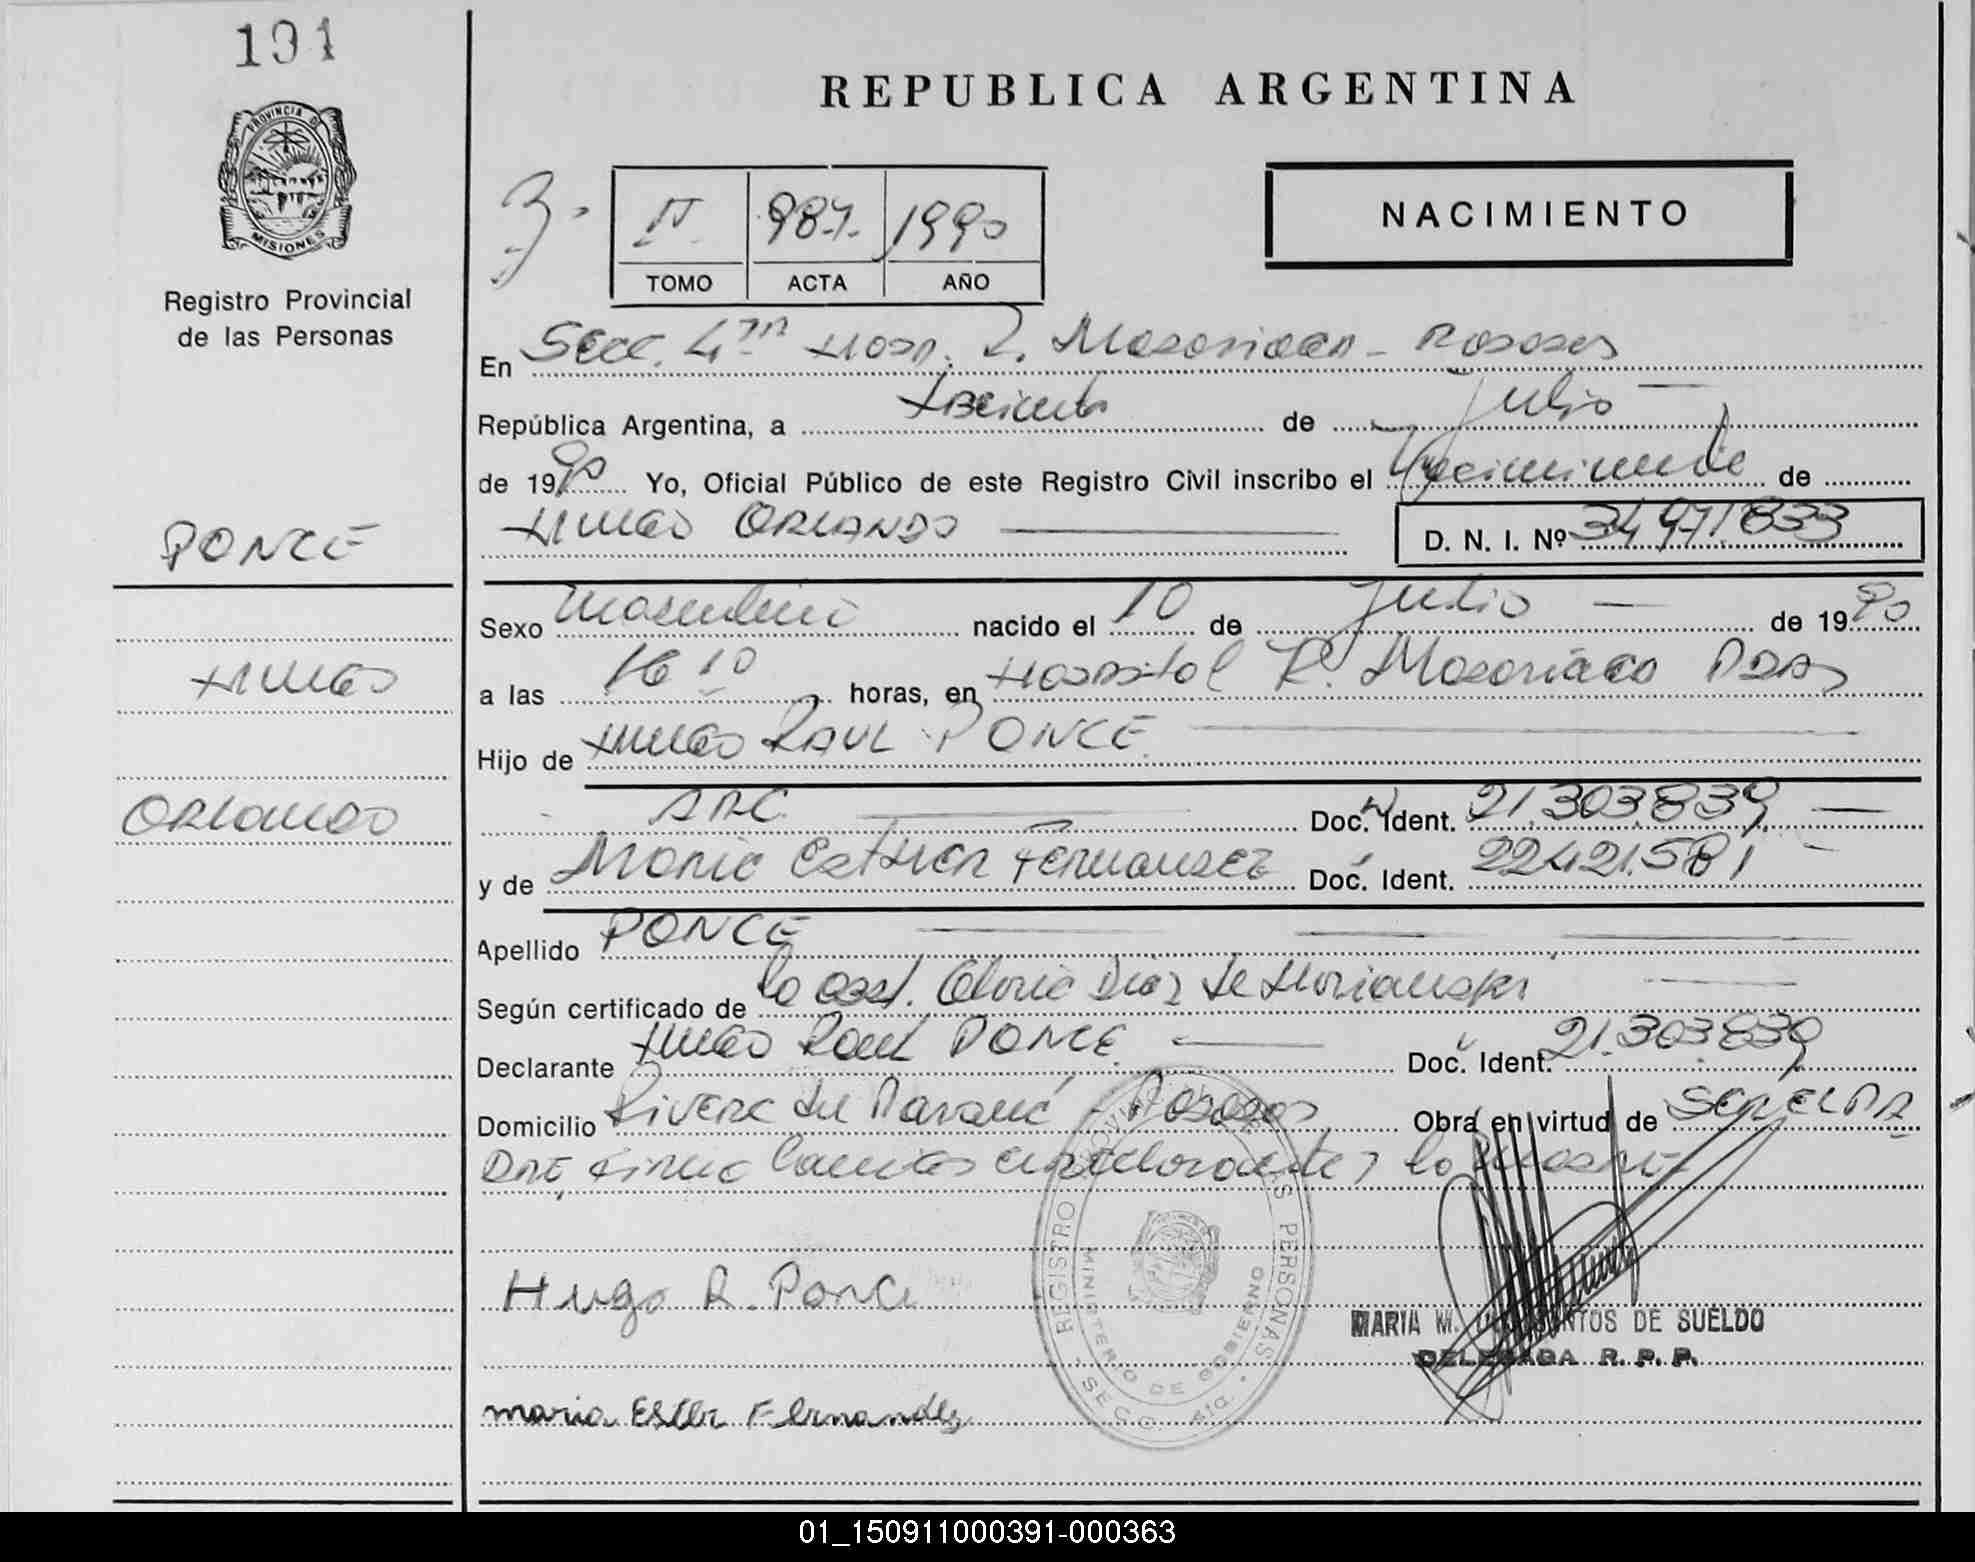 191
PROVINCIA DE
MISIONES
Registro Provincial
de las Personas
REPUBLICA ARGENTINA
NACIMIENTO
3.
II 987. 1990
TOMO ACTA AÑO
En Secc. 4ta Hosp. R. Madariaga - Posadas
República Argentina, a treinta de Julio
de 1990 Yo, Oficial Público de este Registro Civil inscribo el Nacimiento de
HUGO ORLANDO
D. N. I. Nº 34.971.833
PONCE
HUGO
ORLANDO
Sexo masculino nacido el 10 de Julio de 1990
a las 16 10 horas, en Hospital R. Madariaga Pdas
Hijo de HUGO RAUL PONCE
ARG. Doc. Ident. 21.303.839
y de Maria Esther Fernandez Doc. Ident. 22.421.581
Apellido PONCE
Según certificado de la obst. Gloria Diaz de
Declarante HUGO Raul PONCE Doc. Ident. 21.303.839
Domicilio Rivera del Paraná - Posadas Obra en virtud de SER EL PA
DRE, firma la
Hugo R. Ponce
maria Ester Fernandez
REGISTRO PROVINCIAL DE LAS PERSONAS
MINISTERIO DE GOBIERNO
SECC. 4ta.
MARIA M. DE SUELDO
DELEGADA R. P. P.
01_150911000391-000363